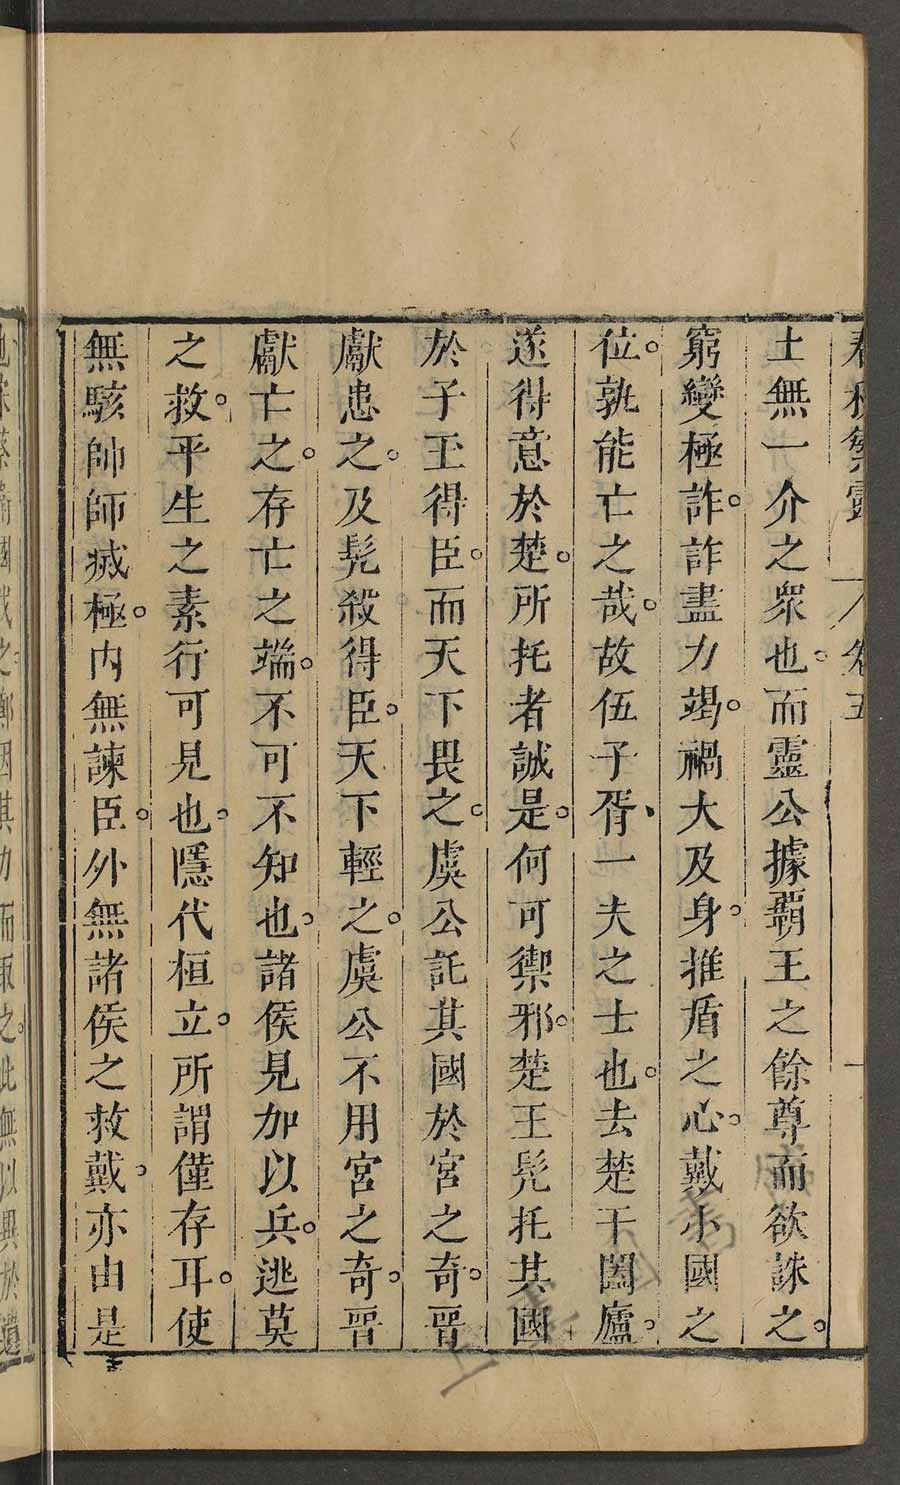 春秋繁露 卷五
士無一介之衆也。而靈公據霸王之餘尊而欲誅之。
窮變極詐。詐盡力竭。禍大及身。推盾之心。戴小國之
位。孰能亡之哉。故伍子胥、一夫之士也。去楚干闔廬。
遂得意於楚。所托者誠是。何可禦邪。楚王髠托其國
於子玉得臣。而天下畏之。虞公託其國於宮之奇。晉
獻患之。及髠殺得臣。天下輕之。虞公不用宮之奇。晉
獻亡之。存亡之端。不可不知也。諸侯見加以兵。逃莫
之救。平生之素行可見也。隱代桓立。所謂僅存耳。使
無駭帥師滅極。内無諫臣。外無諸侯之救。戴。亦由是